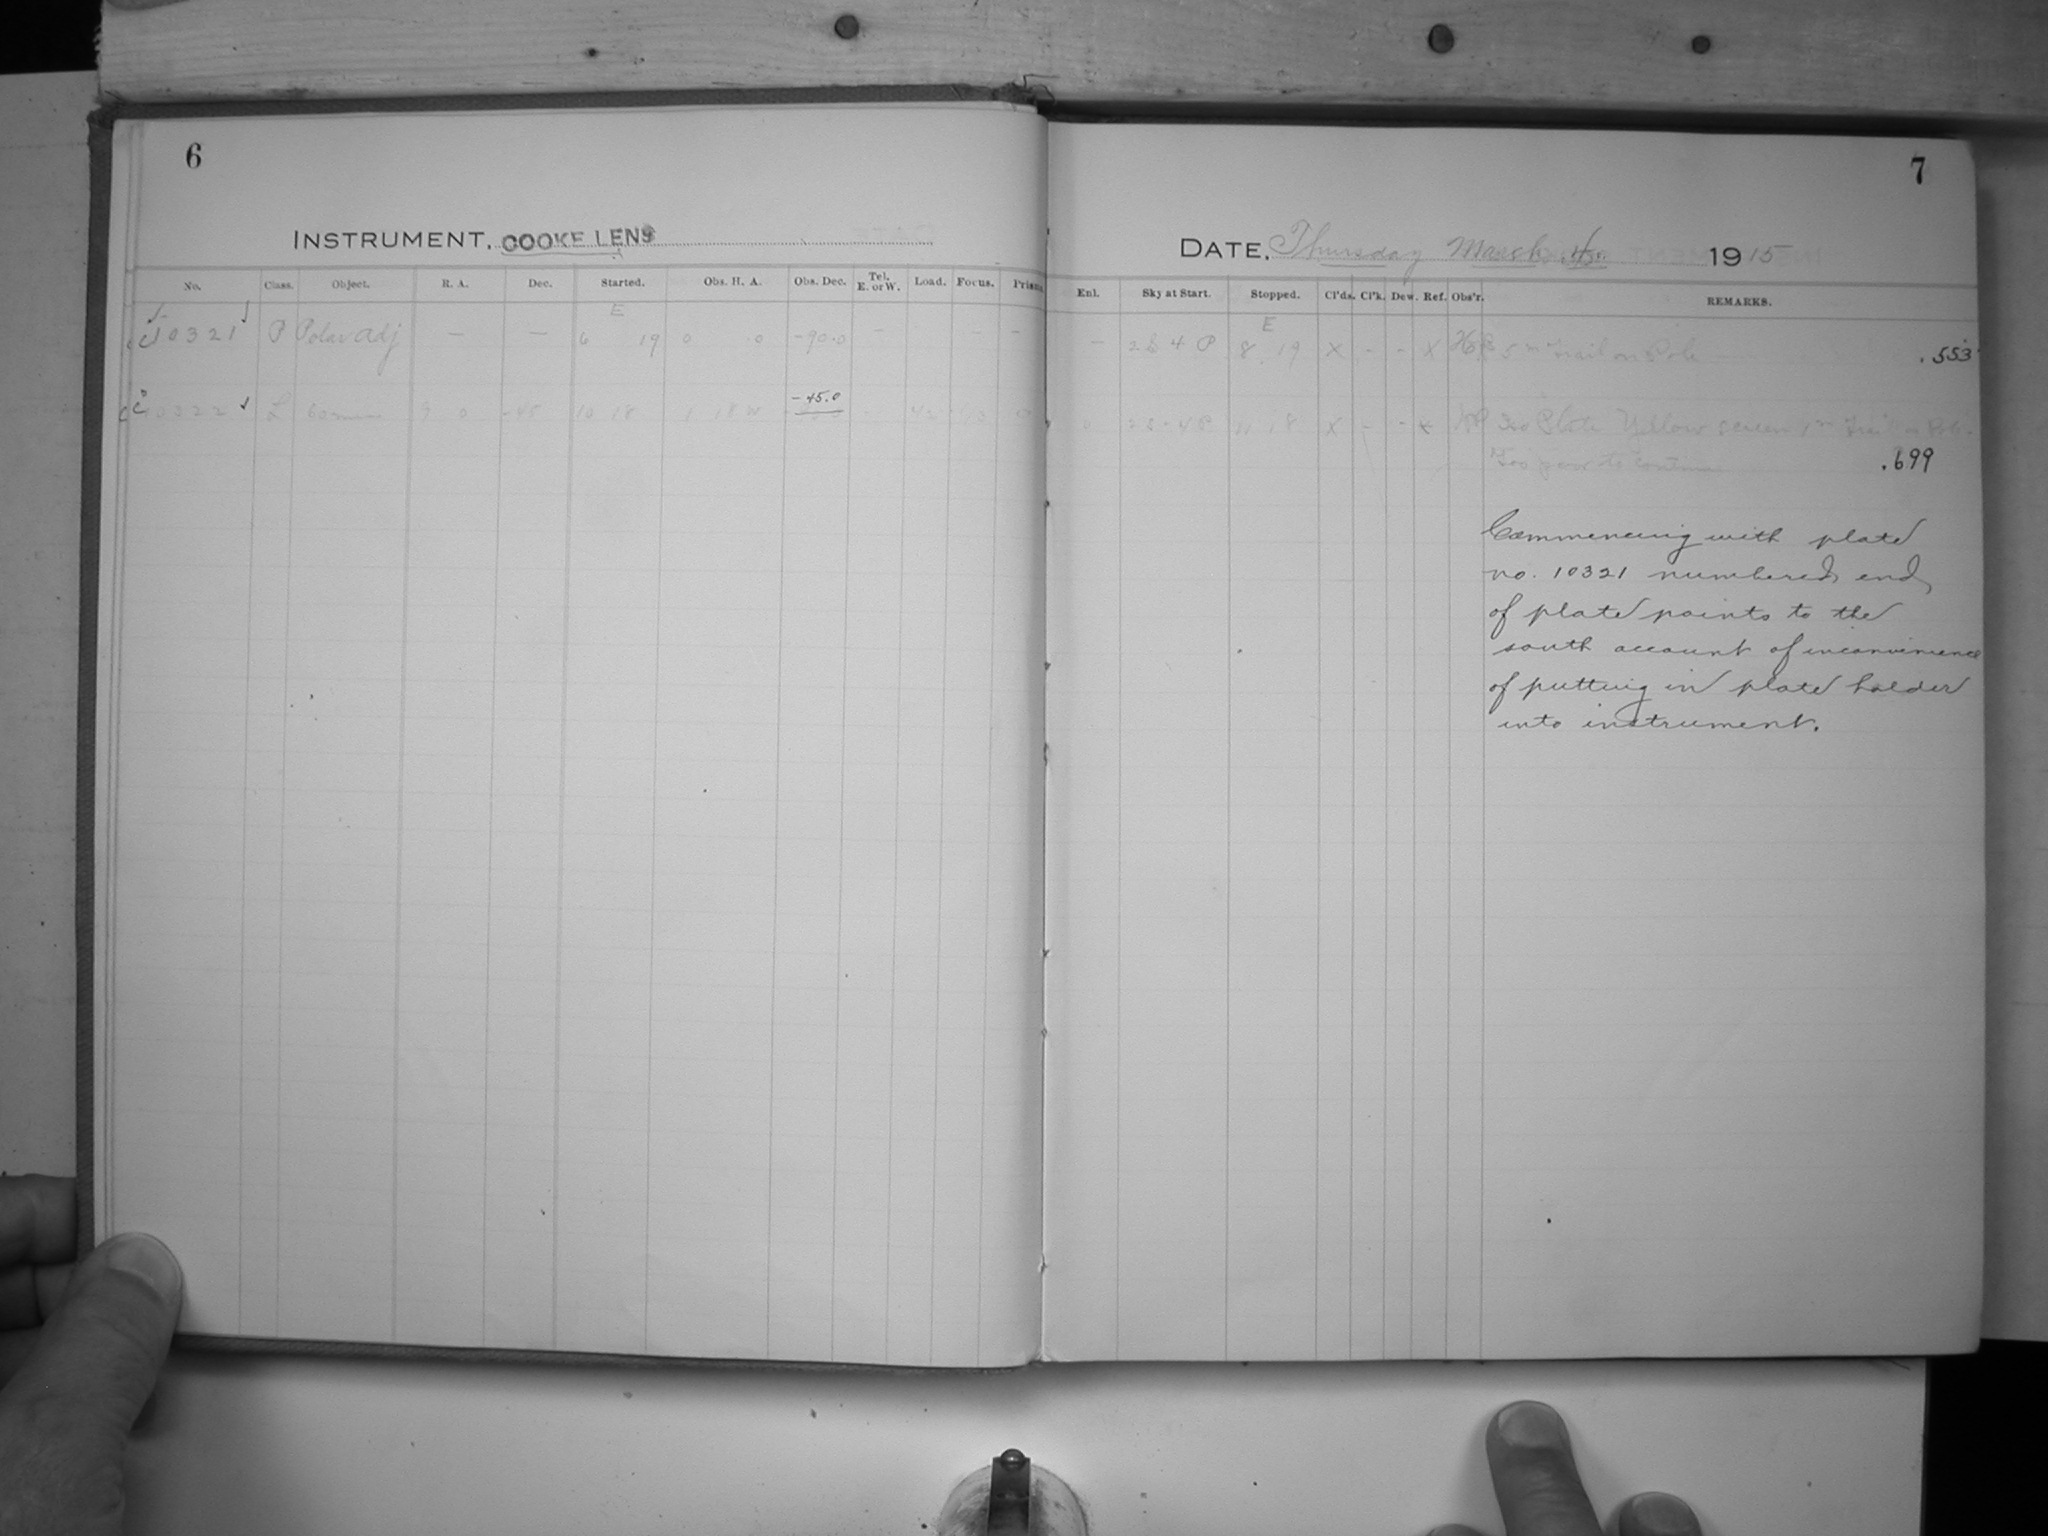 6
INSTRUMENT, COOKE LENS
No. Class. Object. R. A. Dec. Started. Obs. H. A. Obs. Dec. Tel. E. or W. Load. Focus. Prism
E
C 10321 P Polar Adj — — 6 19 0 .0 -90.0 — — —
-45.0
C 10322 L 9 0 -45 10 18 1 18 W
7
DATE, Thursday March 1915
Enl. Sky at Start. Stopped. Cl'ds. Cl'k. Dew. Ref. Obs'r. REMARKS.
E
— 2S 4 P 8 19 X - - X 5m Trail on Pole .553
2S-4P 11 18 X - - X Iso Plate Yellow screen 1m Trail on Pole
Too poor to continue .699
Commencing with plate
no. 10321 numbered end
of plate points to the
south account of inconvenience
of putting in plate holder
into instrument.